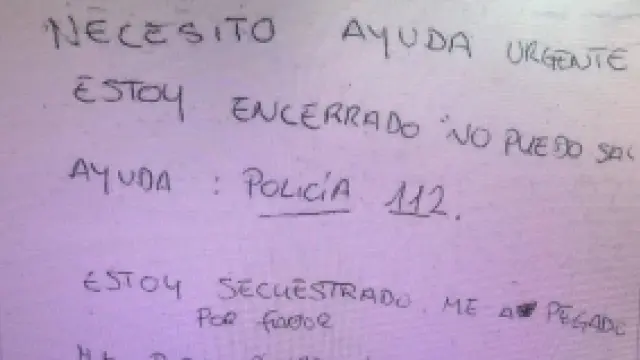 NECESITO AYUDA URGENTE
ESTOY ENCERRADO NO PUEDO SAL
AYUDA : POLICÍA 112.
ESTOY SECUESTRADO. ME A PEGADO
POR FAVOR